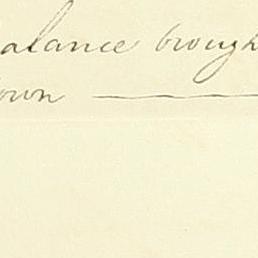 alance brough
own